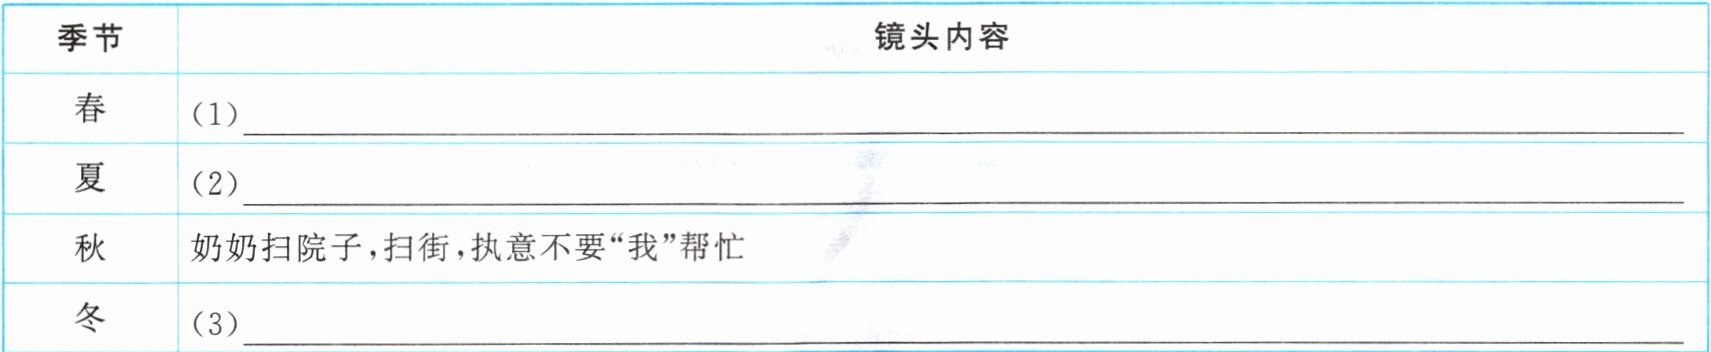 季节 镜头内容
春 (1)
夏 (2)
秋 奶奶扫院子,扫街,执意不要“我”帮忙
冬 (3)